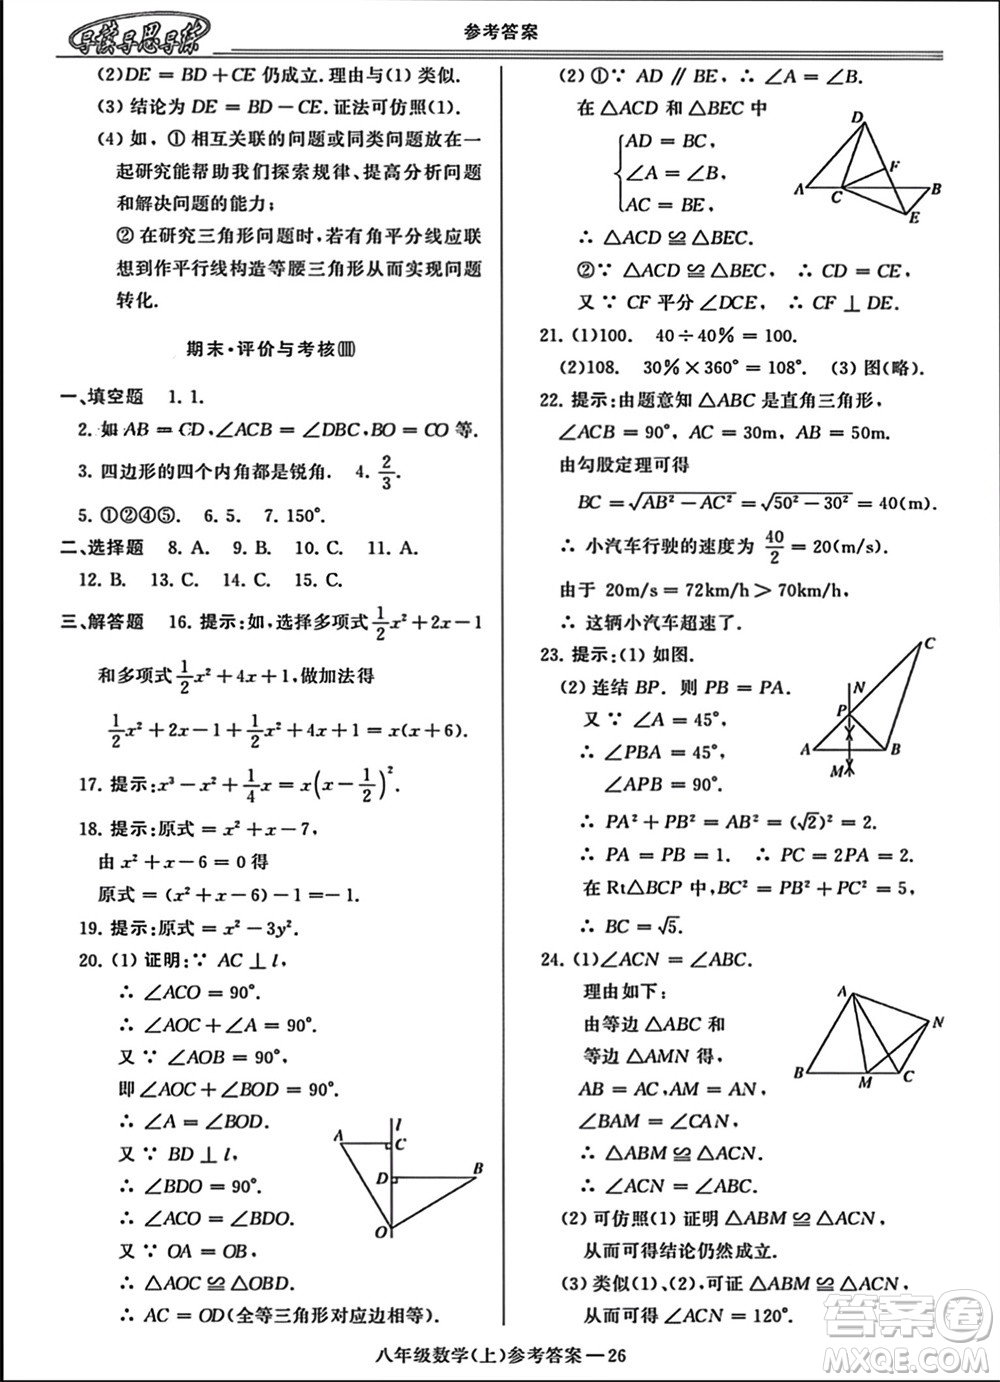 导读导思导练
参考答案
(2)DE = BD + CE 仍成立. 理由与(1) 类似.
(3) 结论为 DE = BD − CE. 证法可仿照(1).
(4) 如, ① 相互关联的问题或同类问题放在一
起研究能帮助我们探索规律、提高分析问题
和解决问题的能力;
② 在研究三角形问题时,若有角平分线应联
想到作平行线构造等腰三角形从而实现问题
转化.
期末·评价与考核(Ⅲ)
一、填空题 1. 1.
2. 如 AB = CD, ∠ACB = ∠DBC, BO = CO 等.
3. 四边形的四个内角都是锐角. 4. 2/3.
5. ①②④⑤. 6. 5. 7. 150°.
二、选择题 8. A. 9. B. 10. C. 11. A.
12. B. 13. C. 14. B. 15. C.
三、解答题 16. 提示:如,选择多项式 1/2 x² + 2x − 1
和多项式 1/2 x² + 4x + 1, 做加法得
1/2 x² + 2x − 1 + 1/2 x² + 4x + 1 = x(x + 6).
17. 提示: x³ − x² + 1/4 x = x(x − 1/2)².
18. 提示:原式 = x² + x − 7,
由 x² + x − 6 = 0 得
原式 = (x² + x − 6) − 1 = −1.
19. 提示:原式 = x² − 3y².
20. (1) 证明: ∵ AC ⊥ l,
∴ ∠ACO = 90°.
∴ ∠AOC + ∠A = 90°.
又 ∵ ∠AOB = 90°,
即 ∠AOC + ∠BOD = 90°.
∴ ∠A = ∠BOD.
又 ∵ BD ⊥ l,
∴ ∠BDO = 90°.
∴ ∠ACO = ∠BDO.
又 ∵ OA = OB,
∴ △AOC ≌ △OBD.
∴ AC = OD(全等三角形对应边相等).
l
A
C
D
B
O
(2) ①∵ AD ∥ BE, ∴ ∠A = ∠B.
在 △ACD 和 △BEC 中
AD = BC,
∠A = ∠B,
AC = BE,
∴ △ACD ≌ △BEC.
②∵ △ACD ≌ △BEC, ∴ CD = CE,
又 ∵ CF 平分 ∠DCE, ∴ CF ⊥ DE.
D
F
A
C
B
E
21. (1)100. 40 ÷ 40% = 100.
(2)108. 30% × 360° = 108°. (3) 图(略).
22. 提示:由题意知 △ABC 是直角三角形,
∠ACB = 90°, AC = 30m, AB = 50m.
由勾股定理可得
BC = √(AB² − AC²) = √(50² − 30²) = 40(m).
∴ 小汽车行驶的速度为 40/2 = 20(m/s).
由于 20m/s = 72km/h > 70km/h.
∴ 这辆小汽车超速了.
23. 提示:(1) 如图.
(2) 连结 BP. 则 PB = PA.
又 ∵ ∠A = 45°,
∴ ∠PBA = 45°,
∠APB = 90°.
∴ PA² + PB² = AB² = (√2)² = 2.
∴ PA = PB = 1. ∴ PC = 2PA = 2.
在 Rt△BCP 中, BC² = PB² + PC² = 5,
∴ BC = √5.
C
N
P
A
B
M
24. (1)∠ACN = ∠ABC.
理由如下:
由等边 △ABC 和
等边 △AMN 得,
AB = AC, AM = AN,
∠BAM = ∠CAN,
∴ △BAM ≌ △ACN.
∴ ∠ACN = ∠ABC.
(2) 可仿照(1) 证明 △ABM ≌ △ACN,
从而可得结论仍然成立.
(3) 类似(1)、(2), 可证 △ABM ≌ △ACN,
从而可得 ∠ACN = 120°.
A
N
B
M
C
八年级数学(上)参考答案 — 26
答案圈
MXQE.COM